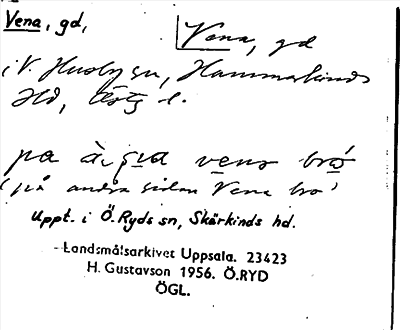 Vena, gd,
Vena, gd
i V. Husby sn, Hammarkinds
hd, Östg l.
pa
'på andra sidan Vena bro'
Uppt. i Ö. Ryds sn, Skärkinds hd.
Landsmålsarkivet Uppsala. 23423
H. Gustavson 1956. Ö.RYD
ÖGL.